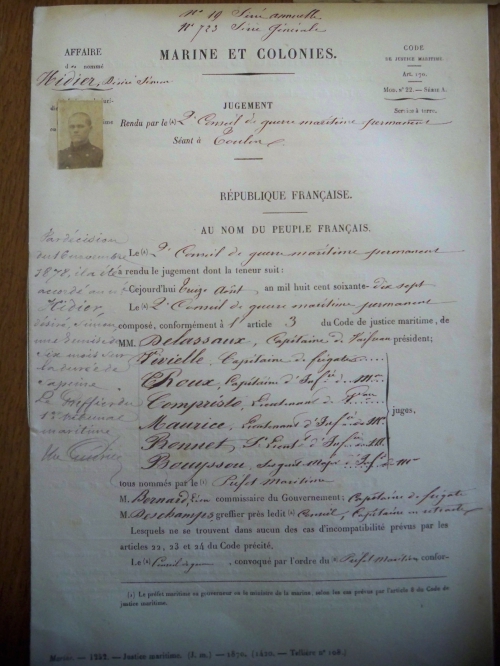 N.º 19 Série annuelle
N.º 723 Série Générale
AFFAIRE
du nommé
Hidier, Désiré Siméon
MARINE ET COLONIES.
CODE
DE JUSTICE MARITIME
Art. 170.
Mod. nº 22. — Série A.
Service à terre.
JUGEMENT
Rendu par le (1) 2e Conseil de guerre maritime permanent
Séant à Toulon
RÉPUBLIQUE FRANÇAISE.
AU NOM DU PEUPLE FRANÇAIS.
Le (1) 2e Conseil de guerre maritime permanent
a rendu le jugement dont la teneur suit:
Cejourd'hui treize Août an mil huit cent soixante-dix sept
Le (1) 2e Conseil de guerre maritime permanent
composé, conformément à l'article 3 du Code de justice maritime, de
MM. Delassaux, Capitaine de Vaisseau président;
Vivielle, Capitaine de frégate
Roux, Capitaine d'Inf.ie de M.ne
Compristo, Lieutenant de V.eau
Maurice, Lieutenant d'Inf.ie de M.
juges,
Bonnet, S. Lieut. d'Inf.ie de M.
Bouysson, Sergent-Major d'Inf.ie de M.ne
tous nommés par le Préfet Maritime
M. Bernard, commissaire du Gouvernement; Capitaine de frégate
M. Deschamps greffier près ledit (1) Conseil, Capitaine en retraite
Lesquels ne se trouvent dans aucun des cas d'incompatibilité prévus par les
articles 22, 23 et 24 du Code précité.
Le (1) Conseil de guerre, convoqué par l'ordre du Préfet Maritime confor-
(1) Le préfet maritime ou gouverneur ou le ministre de la marine, selon les cas prévus par l'article 6 du Code de
justice maritime.
Marine. — 1227. — Justice maritime. (J. m.) — 1870.
Par décision
du 16 novembre
1878, il a été
accordé au né
Hidier,
désiré, Siméon
une remise de
six mois sur
la durée de
sa peine
Le Greffier du
1er tribunal
maritime